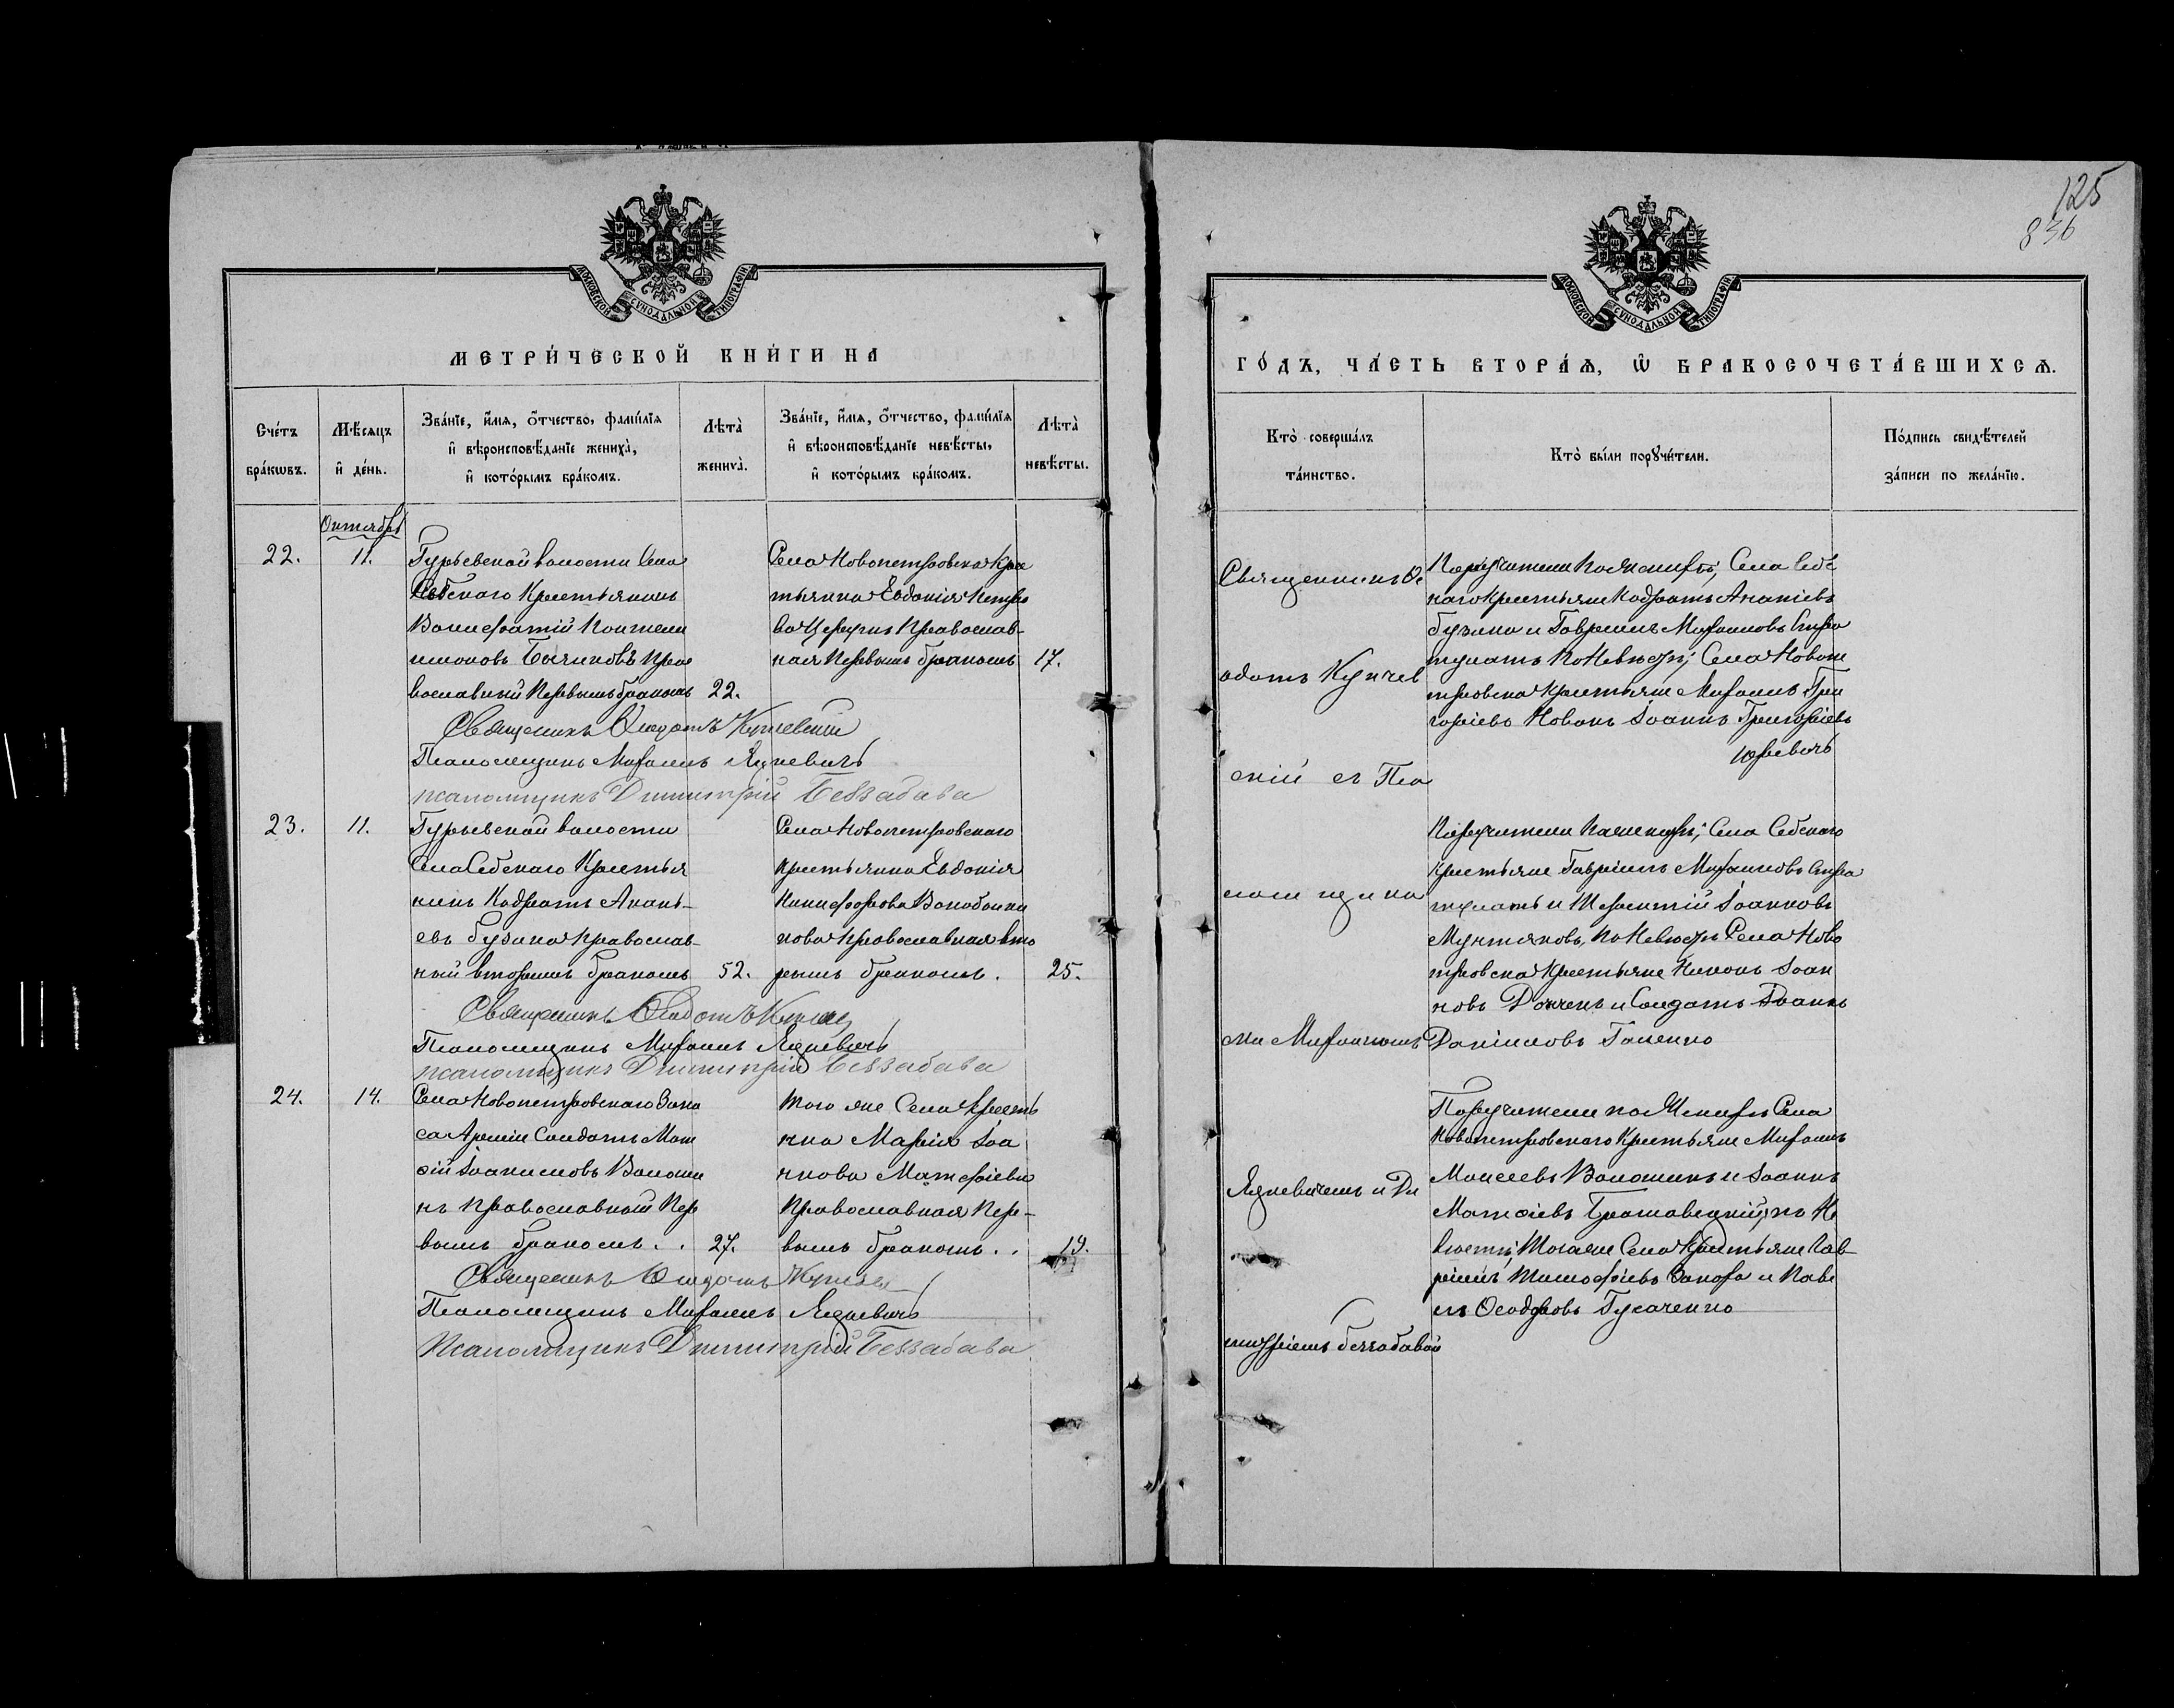 125
836
МОСКОВСКОЙ СѴНОДАЛЬНОЙ ТИПОГРАФІИ
МЕТРИ́ЧЕСКОЙ КНИ́ГИ НА
Сче́тъ бра́кѡвъ.
Мѣ́сяцъ и҆ де́нь.
Зва́нїе, и҆́мя, ѻ҆́тчество, фами́лїя
и҆ вѣроисповѣ́данїе жениха̀,
и҆ кото́рымъ бра́комъ.
Лѣта̀ жениха̀.
Зва́нїе, и҆́мя, ѻ҆́тчество, фами́лїя
и҆ вѣроисповѣ́данїе невѣ́сты,
и҆ кото́рымъ бра́комъ.
Лѣта̀ невѣ́сты.
Октябрь
22.
11.
Гурьевской волости Села
Себскаго Крестьянинъ
Вонифатій Пантели
имоновъ Бычковъ Пра
вославный Первымъ бракомъ
22.
Села Новопетровка Крес
тьянка Евдокія Петро
ва Православ-
ная Первымъ бракомъ
17.
Священникъ Ѳеодотъ Купчевскій
Псаломщикъ Михаилъ Яцкевичъ
псаломщикъ Димитрій Беззабава
23.
11.
Гурьевской волости
Села Себскаго Крестья
нинъ Кодратъ Анань-
евъ Бузика Православ-
ный вторымъ бракомъ
52.
Села Новопетровскаго
Крестьянка Евдокія
Никифорова
нова Православная вто
рымъ бракомъ.
25.
Священникъ Ѳеодотъ
Псаломщикъ Михаилъ Яцкевичъ
псаломщикъ Димитрій Беззабава
24.
14.
Села Новопетровскаго Запа
са Арміи Солдатъ Мат
ѳій Іоанновъ Волоши
нъ Православный Пер
вымъ бракомъ..
27.
Того же Села Крестья
нка Марія Іоа
ннова Матфіева
Православная Пер-
вымъ бракомъ..
19.
Священникъ Ѳеодотъ
Псаломщикъ Михаилъ Яцкевичъ
Псаломщикъ Димитрій Беззабава
МОСКОВСКОЙ СѴНОДАЛЬНОЙ ТИПОГРАФІИ
ГО́ДЪ, ЧА́СТЬ ВТОРА́Ѧ, Ѡ҆ БРАКОСОЧЕТА́ВШИХСѦ.
Кто̀ соверша́лъ
та́инство.
Кто̀ бы́ли порꙋчи́тели.
По́дпись свидѣ́телей
за́писи по жела́нїю.
Священникъ Ѳе
одотъ Купчев
скій съ Пса
ломщика
ми Михаиломъ
Яцкевичемъ и Ди
митріемъ Беззабавой
Поручители По Жениху; Села Себс
каго Крестьяне Кодратъ Ананіевъ
Бузика и Гавріилъ Михаиловъ Стра
тулатъ По Невѣстѣ; Села Новопе
тровка Крестьяне Михаилъ Гри
горіевъ Новакъ Іоаннъ Григоріевъ
Юревичъ
Поручители По жениху; Села Себскаго
Крестьяне Гавріилъ Михаиловъ Стра
тулатъ и Терентій Іоанновъ
Мунтяновъ, По Невѣстѣ Села Ново
тровска Крестьяне Никонъ Іоан
новъ и Солдатъ Іоаннъ
Даніиловъ Галенко
Поручители по Жениху Села
Новопетровскаго Крестьяне Михаилъ
Моисеевъ Волошинъ и Іоаннъ
Матѳіевъ по Не
вѣстѣ; Того же Села Крестьяне Гав-
ріилъ Тимофѣевъ и Паве
лъ Ѳеодоровъ